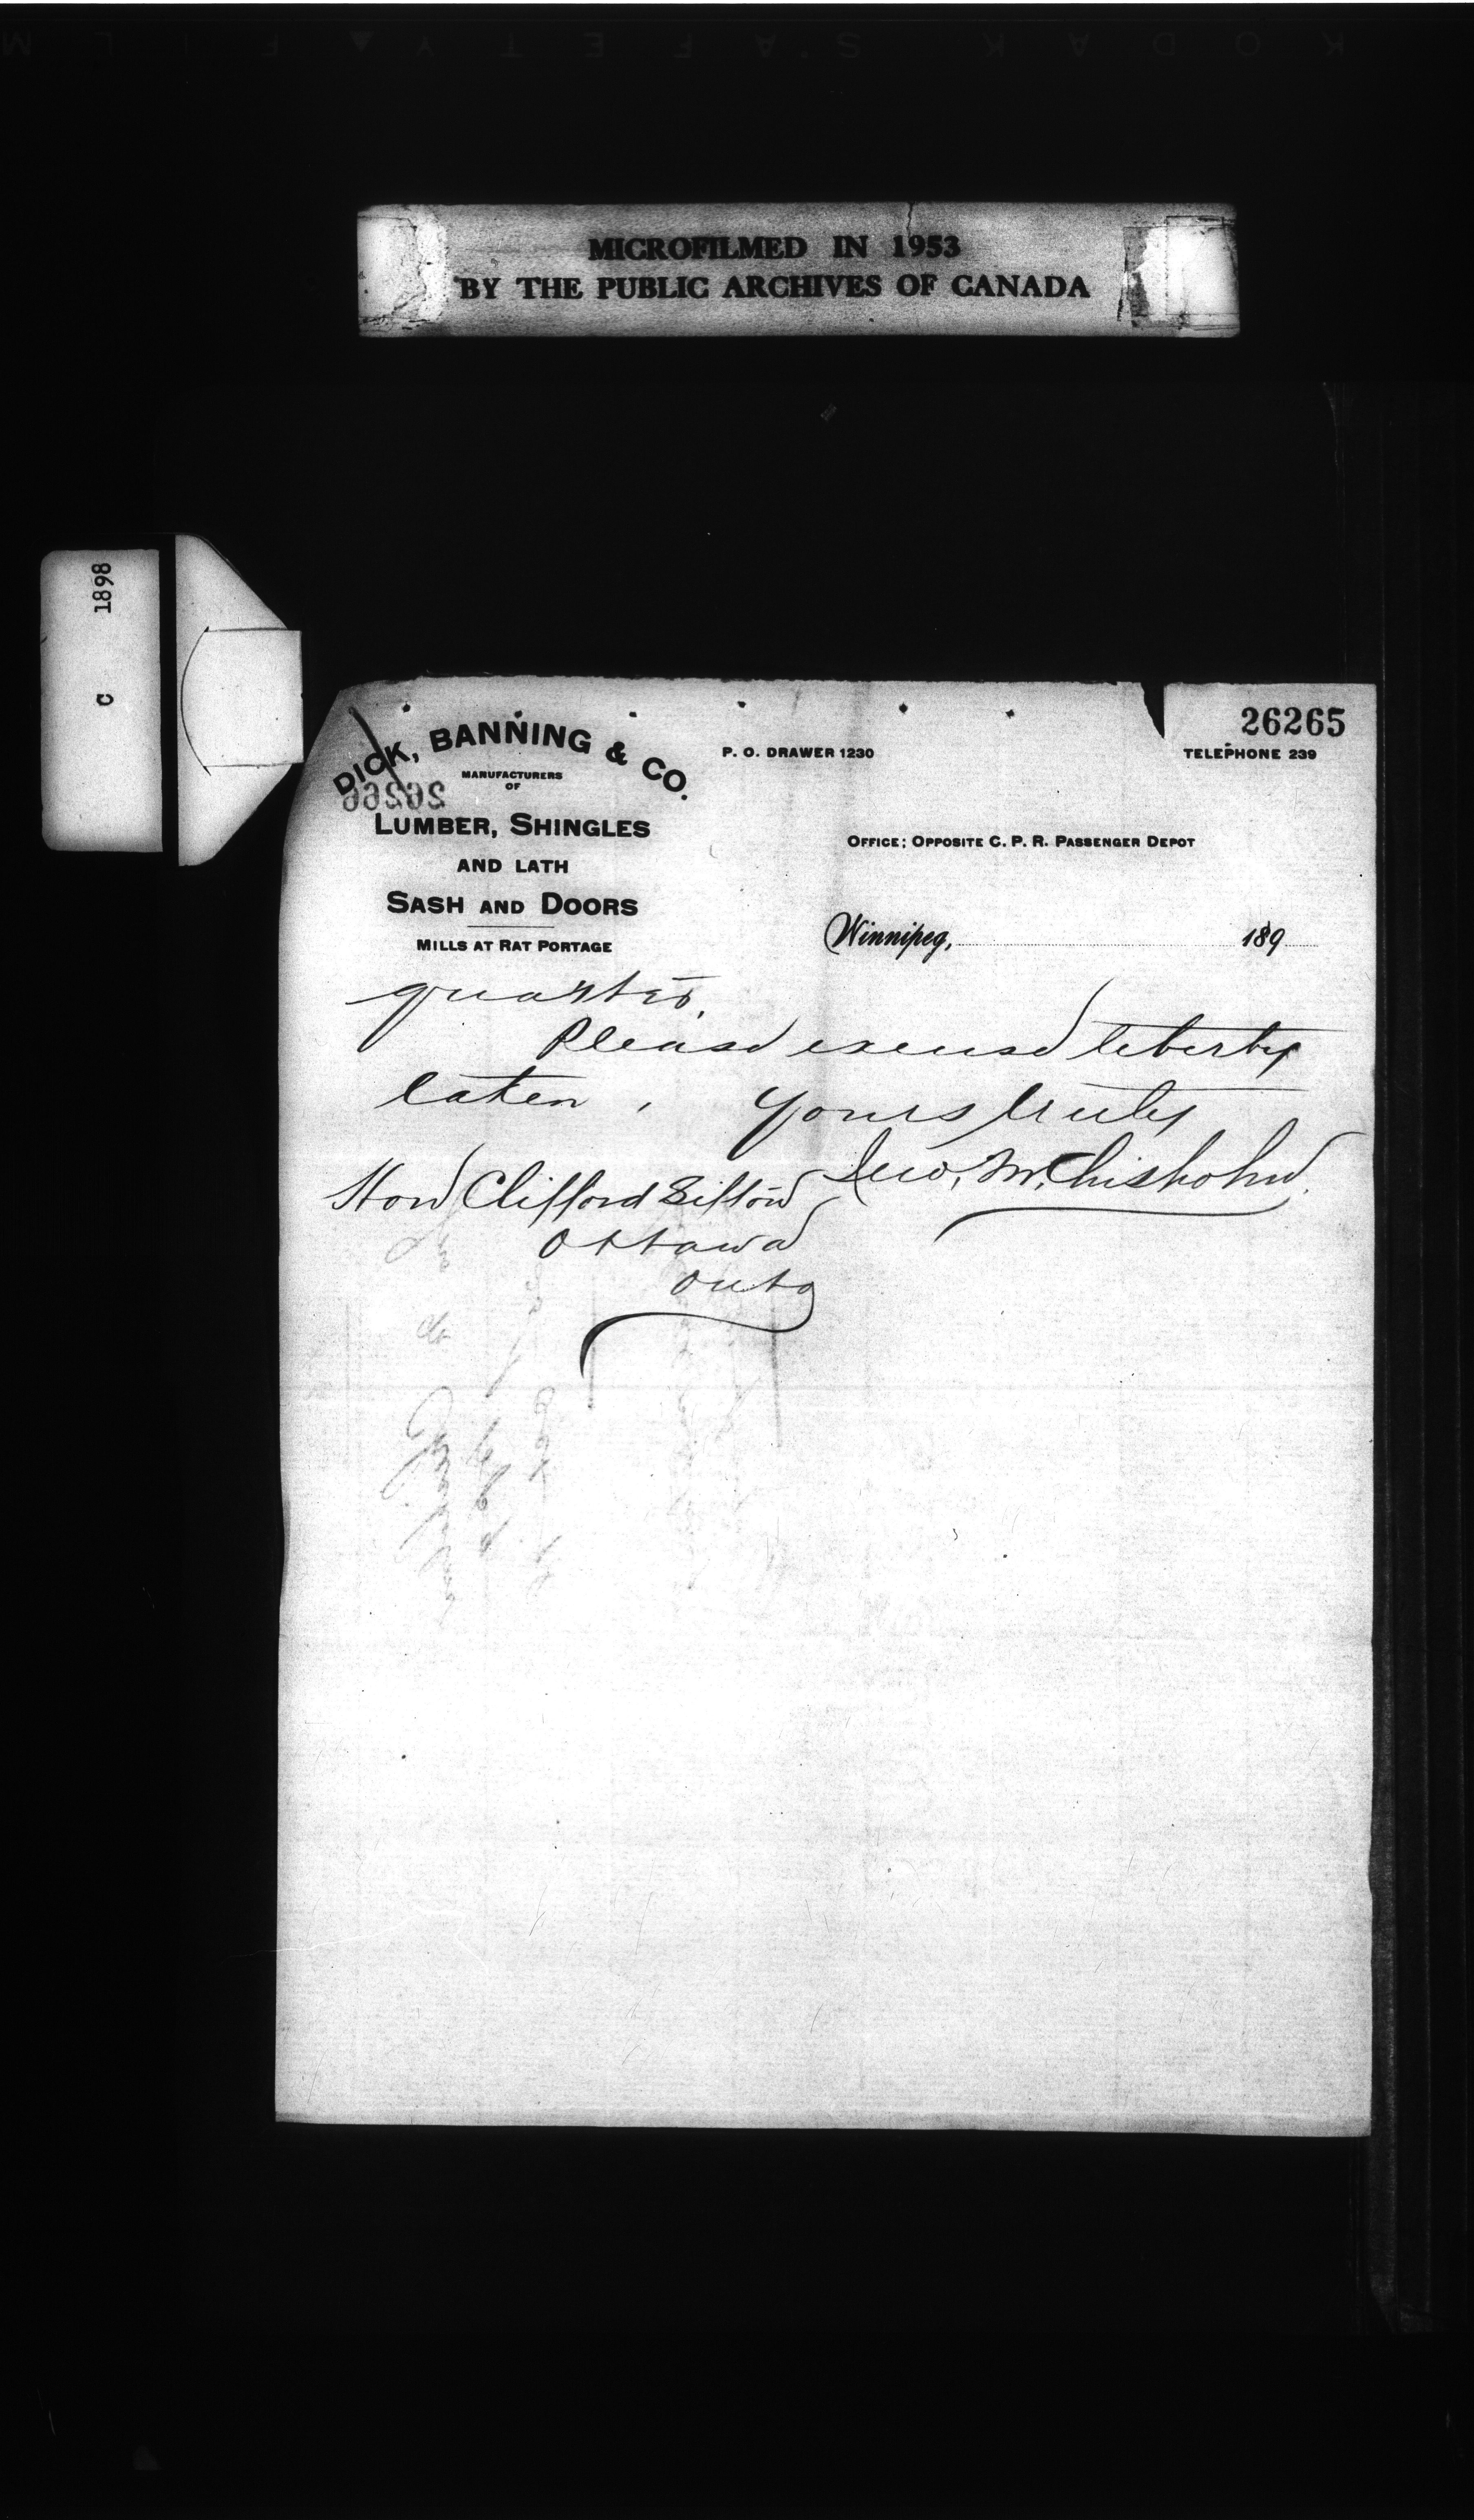 KODAK SAFETY FILM
MICROFILMED IN 1953
BY THE PUBLIC ARCHIVES OF CANADA
C 1898
26265
DICK, BANNING & CO.
P. O. DRAWER 1230
TELEPHONE 239
MANUFACTURERS
OF
26266
LUMBER, SHINGLES
OFFICE; OPPOSITE C. P. R. PASSENGER DEPOT
AND LATH
SASH AND DOORS
Winnipeg, 189
MILLS AT RAT PORTAGE
quarters.
Please excuse liberty
taken, Yours truly
Geo. M. Chisholm
Hon Clifford Sifton
Ottawa
Onto